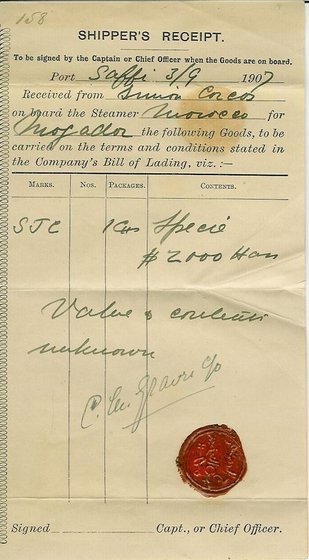 158
SHIPPER'S RECEIPT.
To be signed by the Captain or Chief Officer when the Goods are on board.
Port Saffi 3/9 1907
Received from Simon Corcos
on board the Steamer Morocco for
Mogador the following Goods, to be
carried on the terms and conditions stated in
the Company's Bill of Lading, viz.:—
MARKS. NOS. PACKAGES. CONTENTS.
SJC 1 Specie
$2000 Has
Value & contents
unknown
Signed Capt., or Chief Officer.